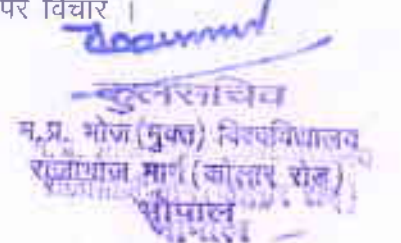 पर विचार
कुलसचिव
म.प्र. भोज (मुक्त) विश्वविद्यालय
राजाभोज मार्ग (कोलार रोड)
भोपाल